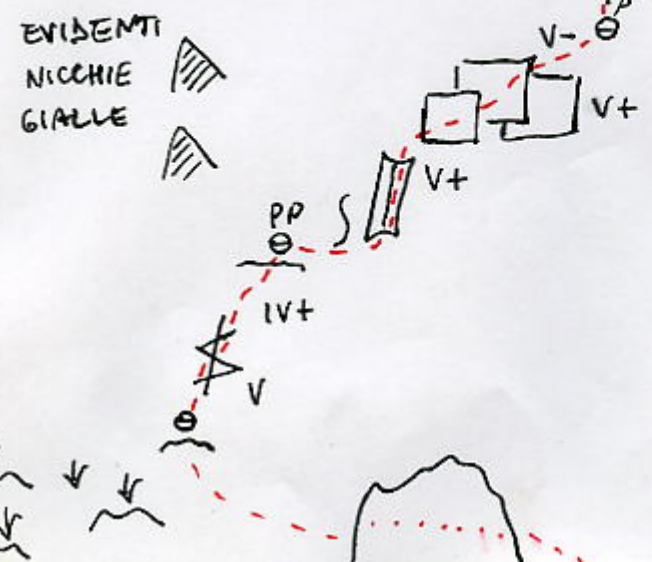 EVIDENTI
NICCHIE
GIALLE
V-
V+
V+
PP
IV+
V